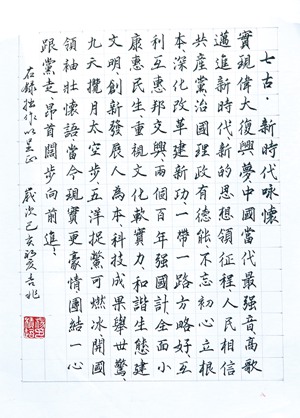 七古·新時代咏懷
實現偉大復興夢中國當代最强音、高歌
邁進新時代新的思想領征程人民相信
共産黨治國理政有德能不忘初心立根
本、深化改革建新功、一帶一路方略好、互
利互惠邦交興兩個百年强國計全面小
康惠民生、重視文化軟實力、和諧生態建
文明、創新發展人為本、科技成果舉世驚、
九天攬月太空步五洋捉鱉可燃冰開國
領袖壯懷語當今現實更豪情團結一心
跟黨走、昂首闊步向前進、
右錄拙作以呈正 歲次己亥初夏吉兆